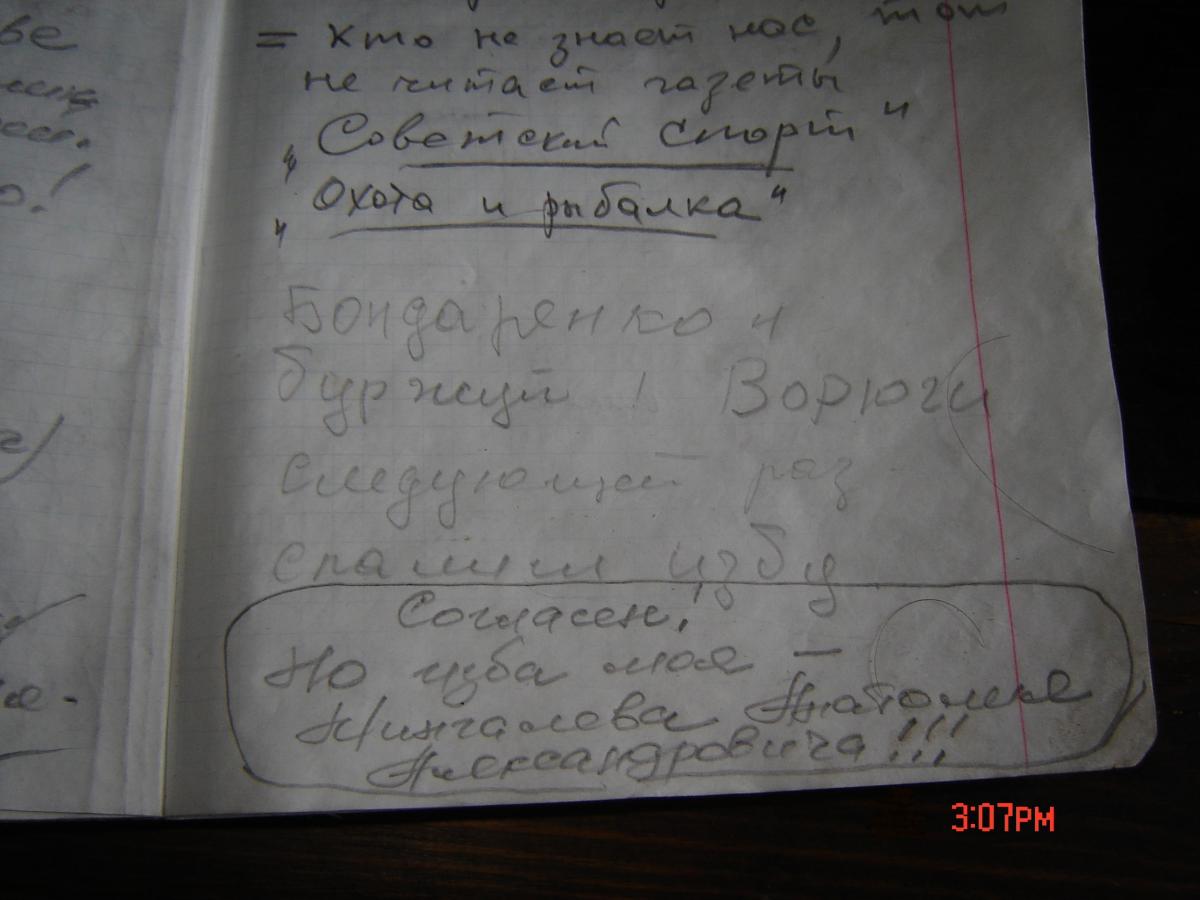 = Кто не знает нас, тот
не читает газеты
„Советский Спорт"
„Охота и рыбалка"
Бондаренко и
буржуй! Ворюги
следующей раз
спалим избу
Согласен!
Но изба моя —
Анатолия
Александровича!!!
ве
о!
3:07PM